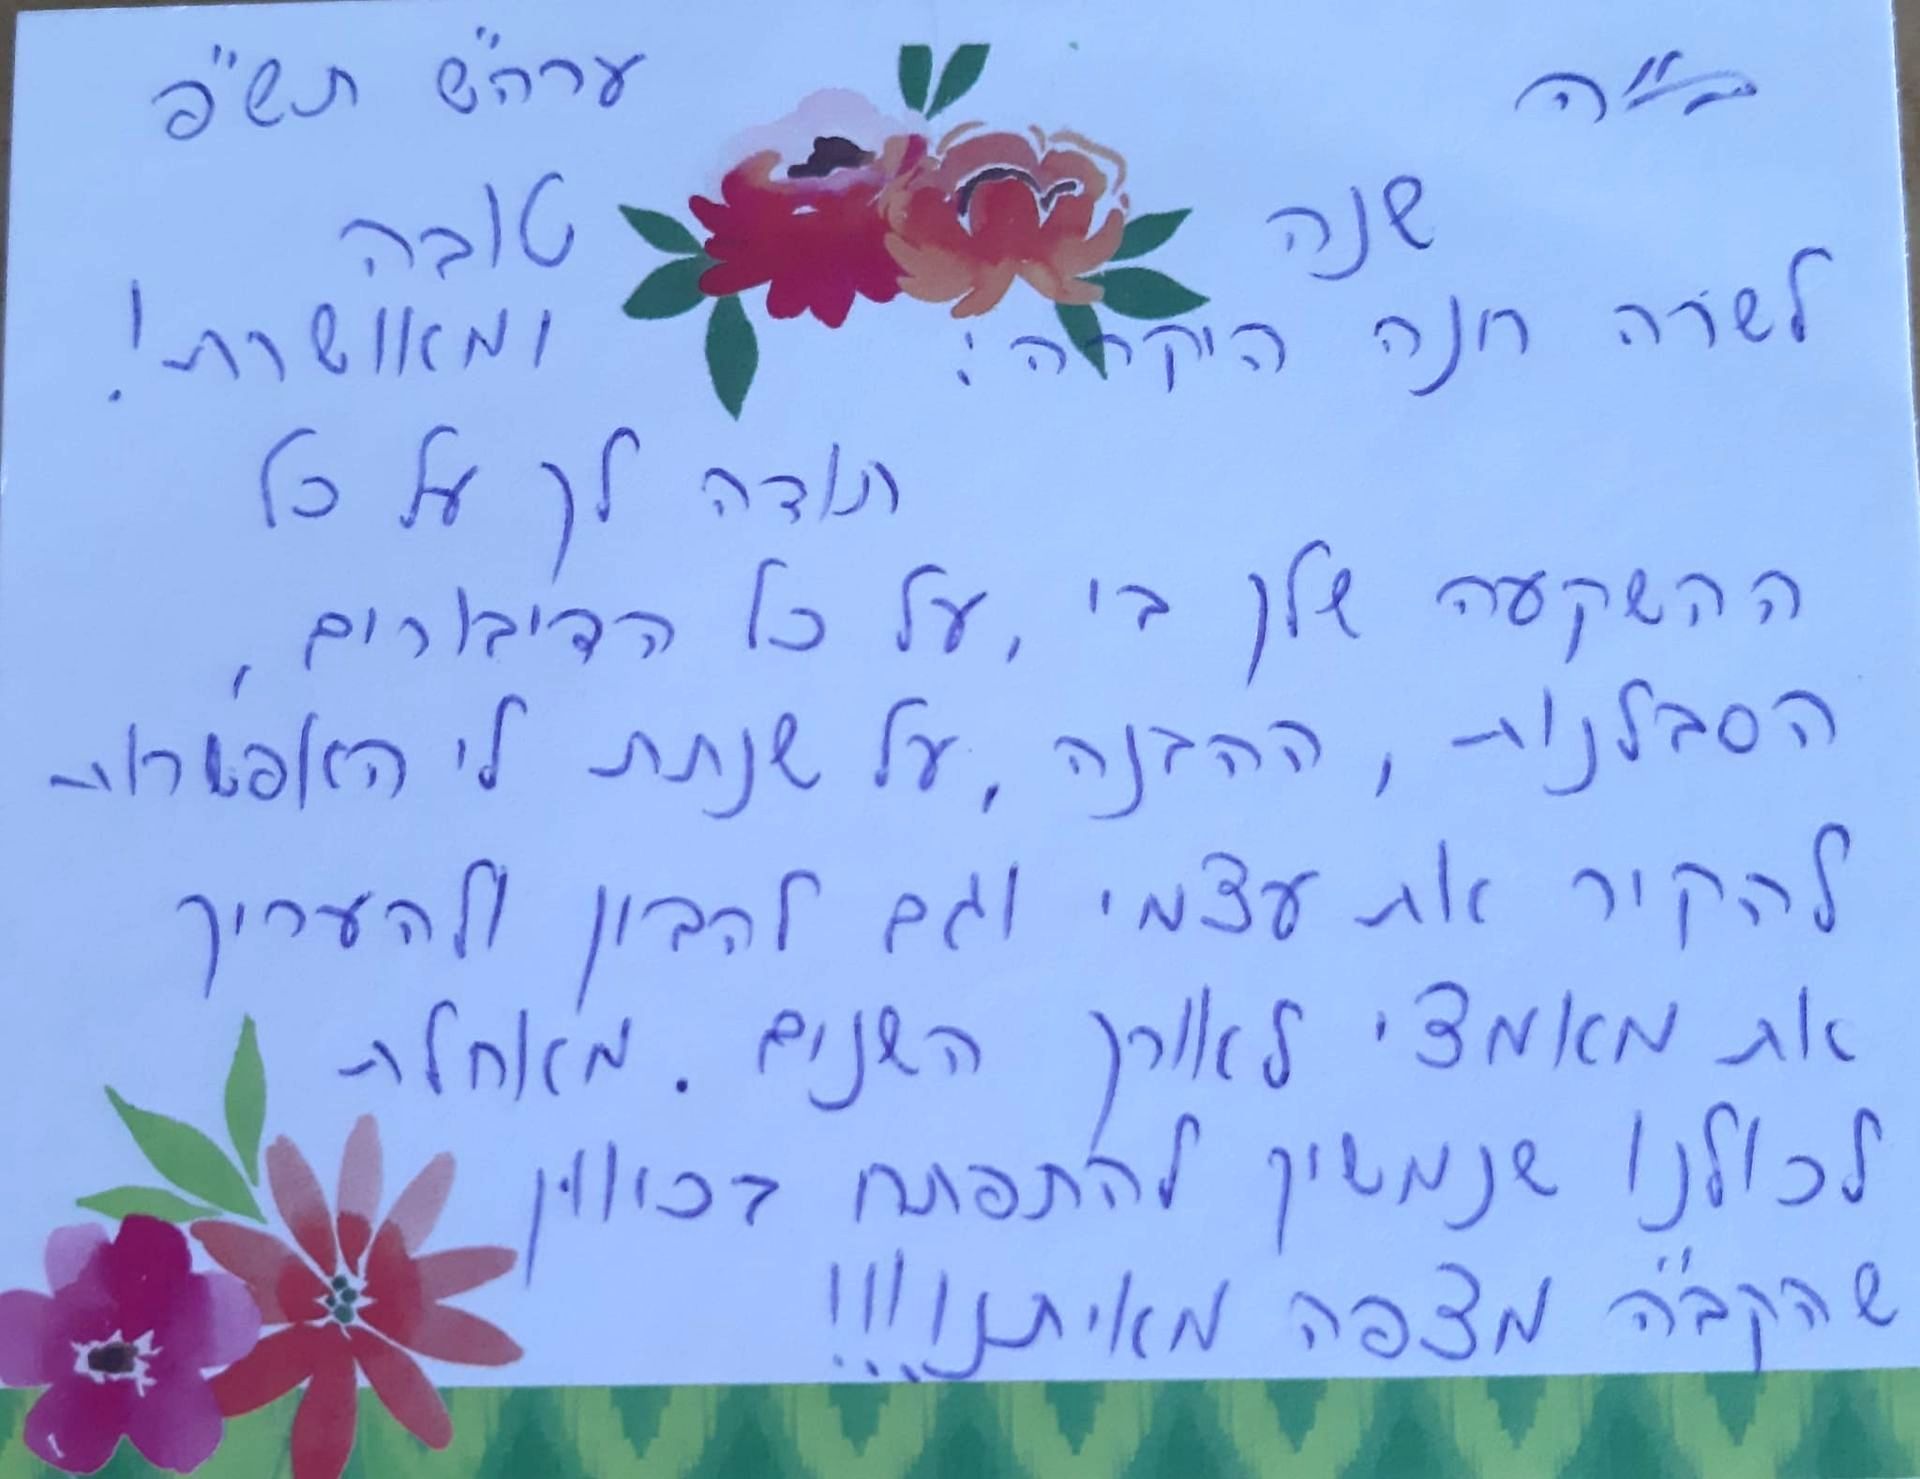 ב"ה ערה"ש תש"פ
שנה טובה
לשרה חנה היקרה: ומאושרת!
תודה לך על כל
ההשקעה שלך בי, על כל הדיבורים,
הסבלנות, ההבנה, על שנתת לי האפשרות
להקיר את עצמי וגם להבין ולהעריך
את מאמצי לאורך השנים. מאחלת
לכולנו שנמשיך להתפתח בכיוון
שהקב"ה מצפה מאיתנו!!!